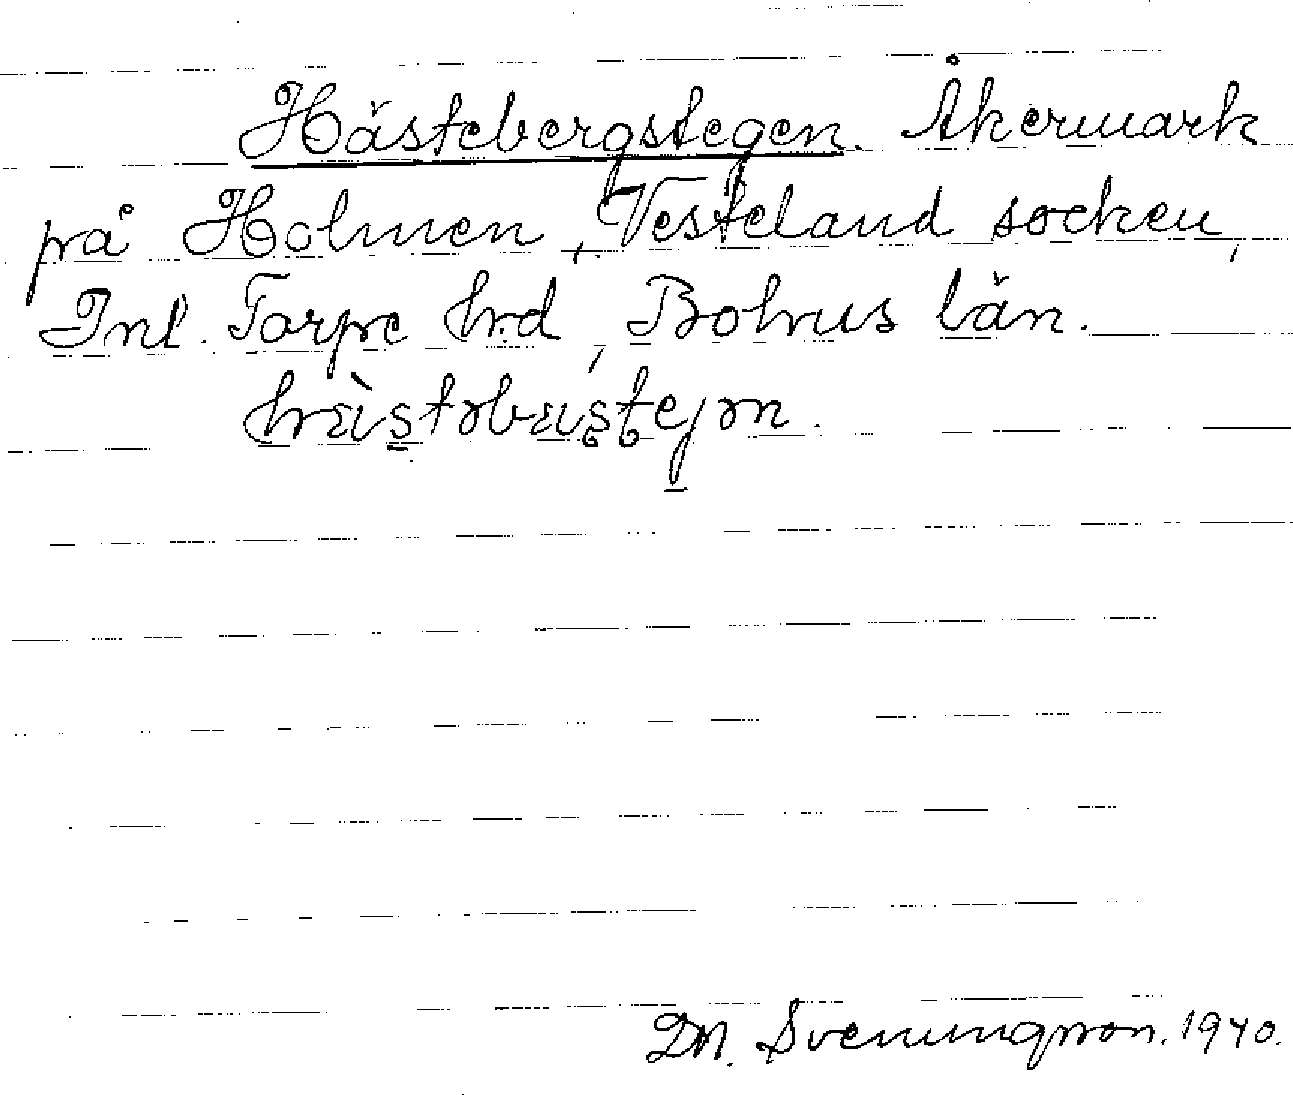 Hästebergstegen. Åkermark
på Holmen, Vesteland socken,
Inl. Torpe hrd, Bohus län.
D.M. Svenungsson. 1940.